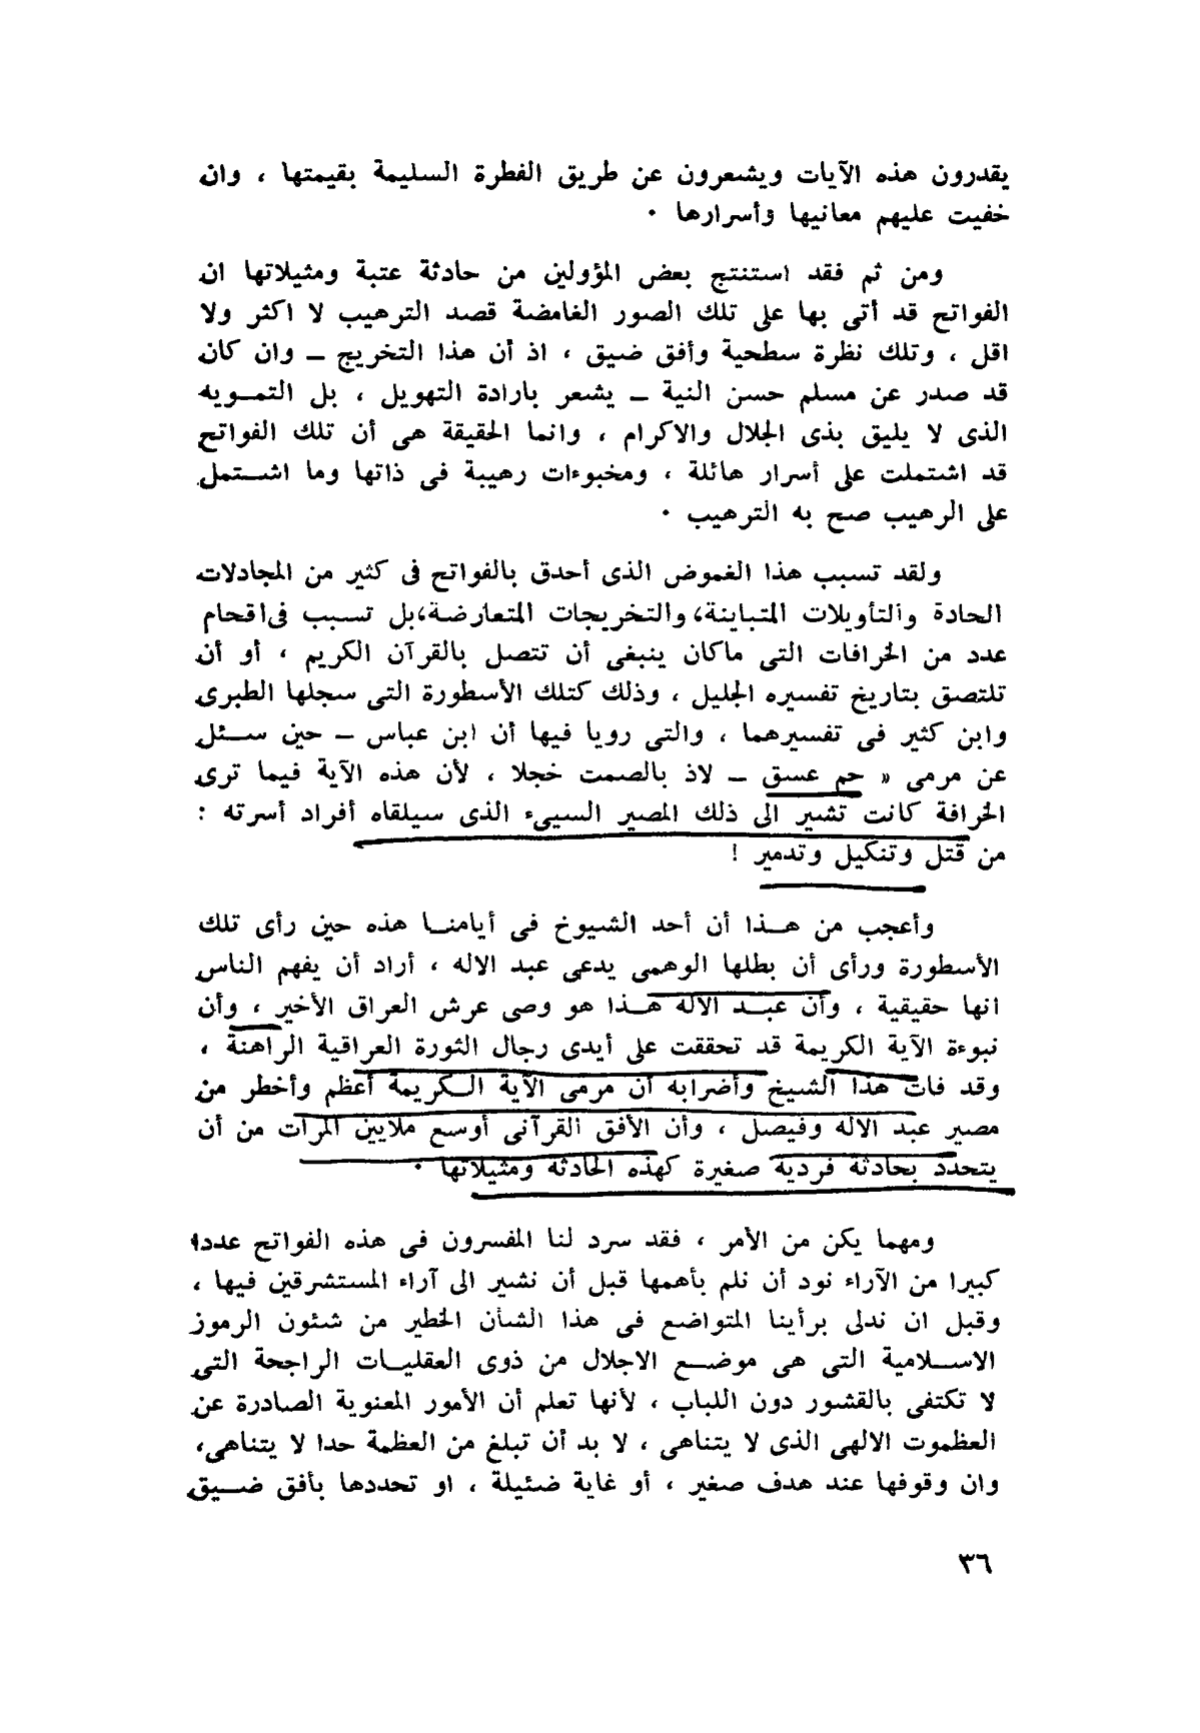 يقدرون هذه الآيات ويشعرون عن طريق الفطرة السليمة بقيمتها ، وان
خفيت عليهم معانيها وأسرارها ٠
ومن ثم فقد استنتج بعض المؤولين من حادثة عتبة ومثيلاتها ان
الفواتح قد أتى بها على تلك الصور الغامضة قصد الترهيب لا اكثر ولا
اقل ، وتلك نظرة سطحية وأفق ضيق ، اذ أن هذا التخريج ــ وان كان
قد صدر عن مسلم حسن النية ــ يشعر بارادة التهويل ، بل التمـويه
الذى لا يليق بذى الجلال والاكرام ، وانما الحقيقة هى أن تلك الفواتح
قد اشتملت على أسرار هائلة ، ومخبوءات رهيبة فى ذاتها وما اشـتمل
على الرهيب صح به الترهيب ٠
ولقد تسبب هذا الغموض الذى أحدق بالفواتح فى كثير من المجادلات
الحادة والتأويلات المتباينة،والتخريجات المتعارضة،بل تسبب فىاقحام
عدد من الخرافات التى ماكان ينبغى أن تتصل بالقرآن الكريم ، أو أن
تلتصق بتاريخ تفسيره الجليل ، وذلك كتلك الأسطورة التى سجلها الطبرى
وابن كثير فى تفسيرهما ، والتى رويا فيها أن ابن عباس ــ حين سـئل
عن مرمى « حم عسق ــ لاذ بالصمت خجلا ، لأن هذه الآية فيما ترى
الخرافة كانت تشير الى ذلك المصير السيىء الذى سيلقاه أفراد أسرته :
من قتل وتنكيل وتدمير !
وأعجب من هـذا أن أحد الشيوخ فى أيامنـا هذه حين رأى تلك
الأسطورة ورأى أن بطلها الوهمى يدعى عبد الاله ، أراد أن يفهم الناس
انها حقيقية ، وأن عبـد الاله هـذا هو وصى عرش العراق الأخير ، وأن
نبوءة الآية الكريمة قد تحققت على أيدى رجال الثورة العراقية الراهنة ،
وقد فات هذا الشيخ وأضرابه أن مرمى الآية الـكريمة أعظم وأخطر من
مصير عبد الاله وفيصل ، وأن الأفق القرآنى أوسع ملايين المرات من أن
يتحدد بحادثة فردية صغيرة كهذه الحادثة ومثيلاتها ٠
ومهما يكن من الأمر ، فقد سرد لنا المفسرون فى هذه الفواتح عددا
كبيرا من الآراء نود أن نلم بأهمها قبل أن نشير الى آراء المستشرقين فيها ،
وقبل ان ندلى برأينا المتواضع فى هذا الشأن الخطير من شئون الرموز
الاسـلامية التى هى موضـع الاجلال من ذوى العقليـات الراجحة التى
لا تكتفى بالقشور دون اللباب ، لأنها تعلم أن الأمور المعنوية الصادرة عن
العظموت الالهى الذى لا يتناهى ، لا بد أن تبلغ من العظمة حدا لا يتناهى،
وان وقوفها عند هدف صغير ، أو غاية ضئيلة ، او تحددها بأفق ضـيق
٣٦